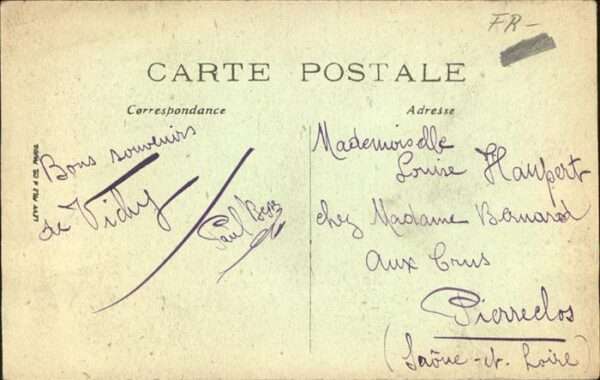 FR-
CARTE POSTALE
Correspondance
Adresse
LEVY FILS & CIE. PARIS
Bons souvenirs
de Vichy
Paul
Mademoiselle
Louise Haupert
chez Madame Bernard
aux Crus
Pierreclos
(Saône-et-Loire)